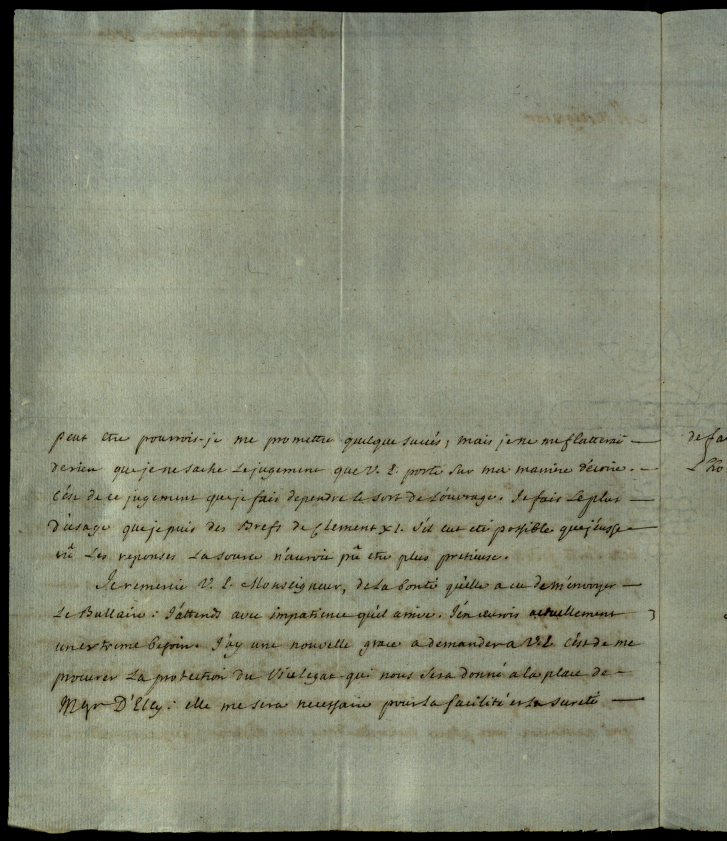 peut etre pourrois-je me promettre quelque succés, mais je ne me flatterai —
de rien que je ne sache Le jugement que V. E. porte sur ma maniere d'écrire. —
C'est de ce jugement que je fais dependre le sort de L'ouvrage. Je fais Le plus —
D'usage que je puis des Brefs de Clement XI. S'il eut eté possible que j'eusse —
vû Les reponses La source n'auroit pû etre plus pretieuse.
Je remercie V. E. Monseigneur, de La bonté qu'elle a eu de m'envoyer —
Le Bullaire: J'attends avec impatience qu'il arrive. J'en aurois actuellement
un extreme besoin. J'ay une nouvelle grace a demander a V. E. C'est de me
procurer La protection du Vicelegat qui nous sera donné a la place de —
Mgr D'Elcy: elle me sera necessaire pour La facilité et La sureté —
de fa